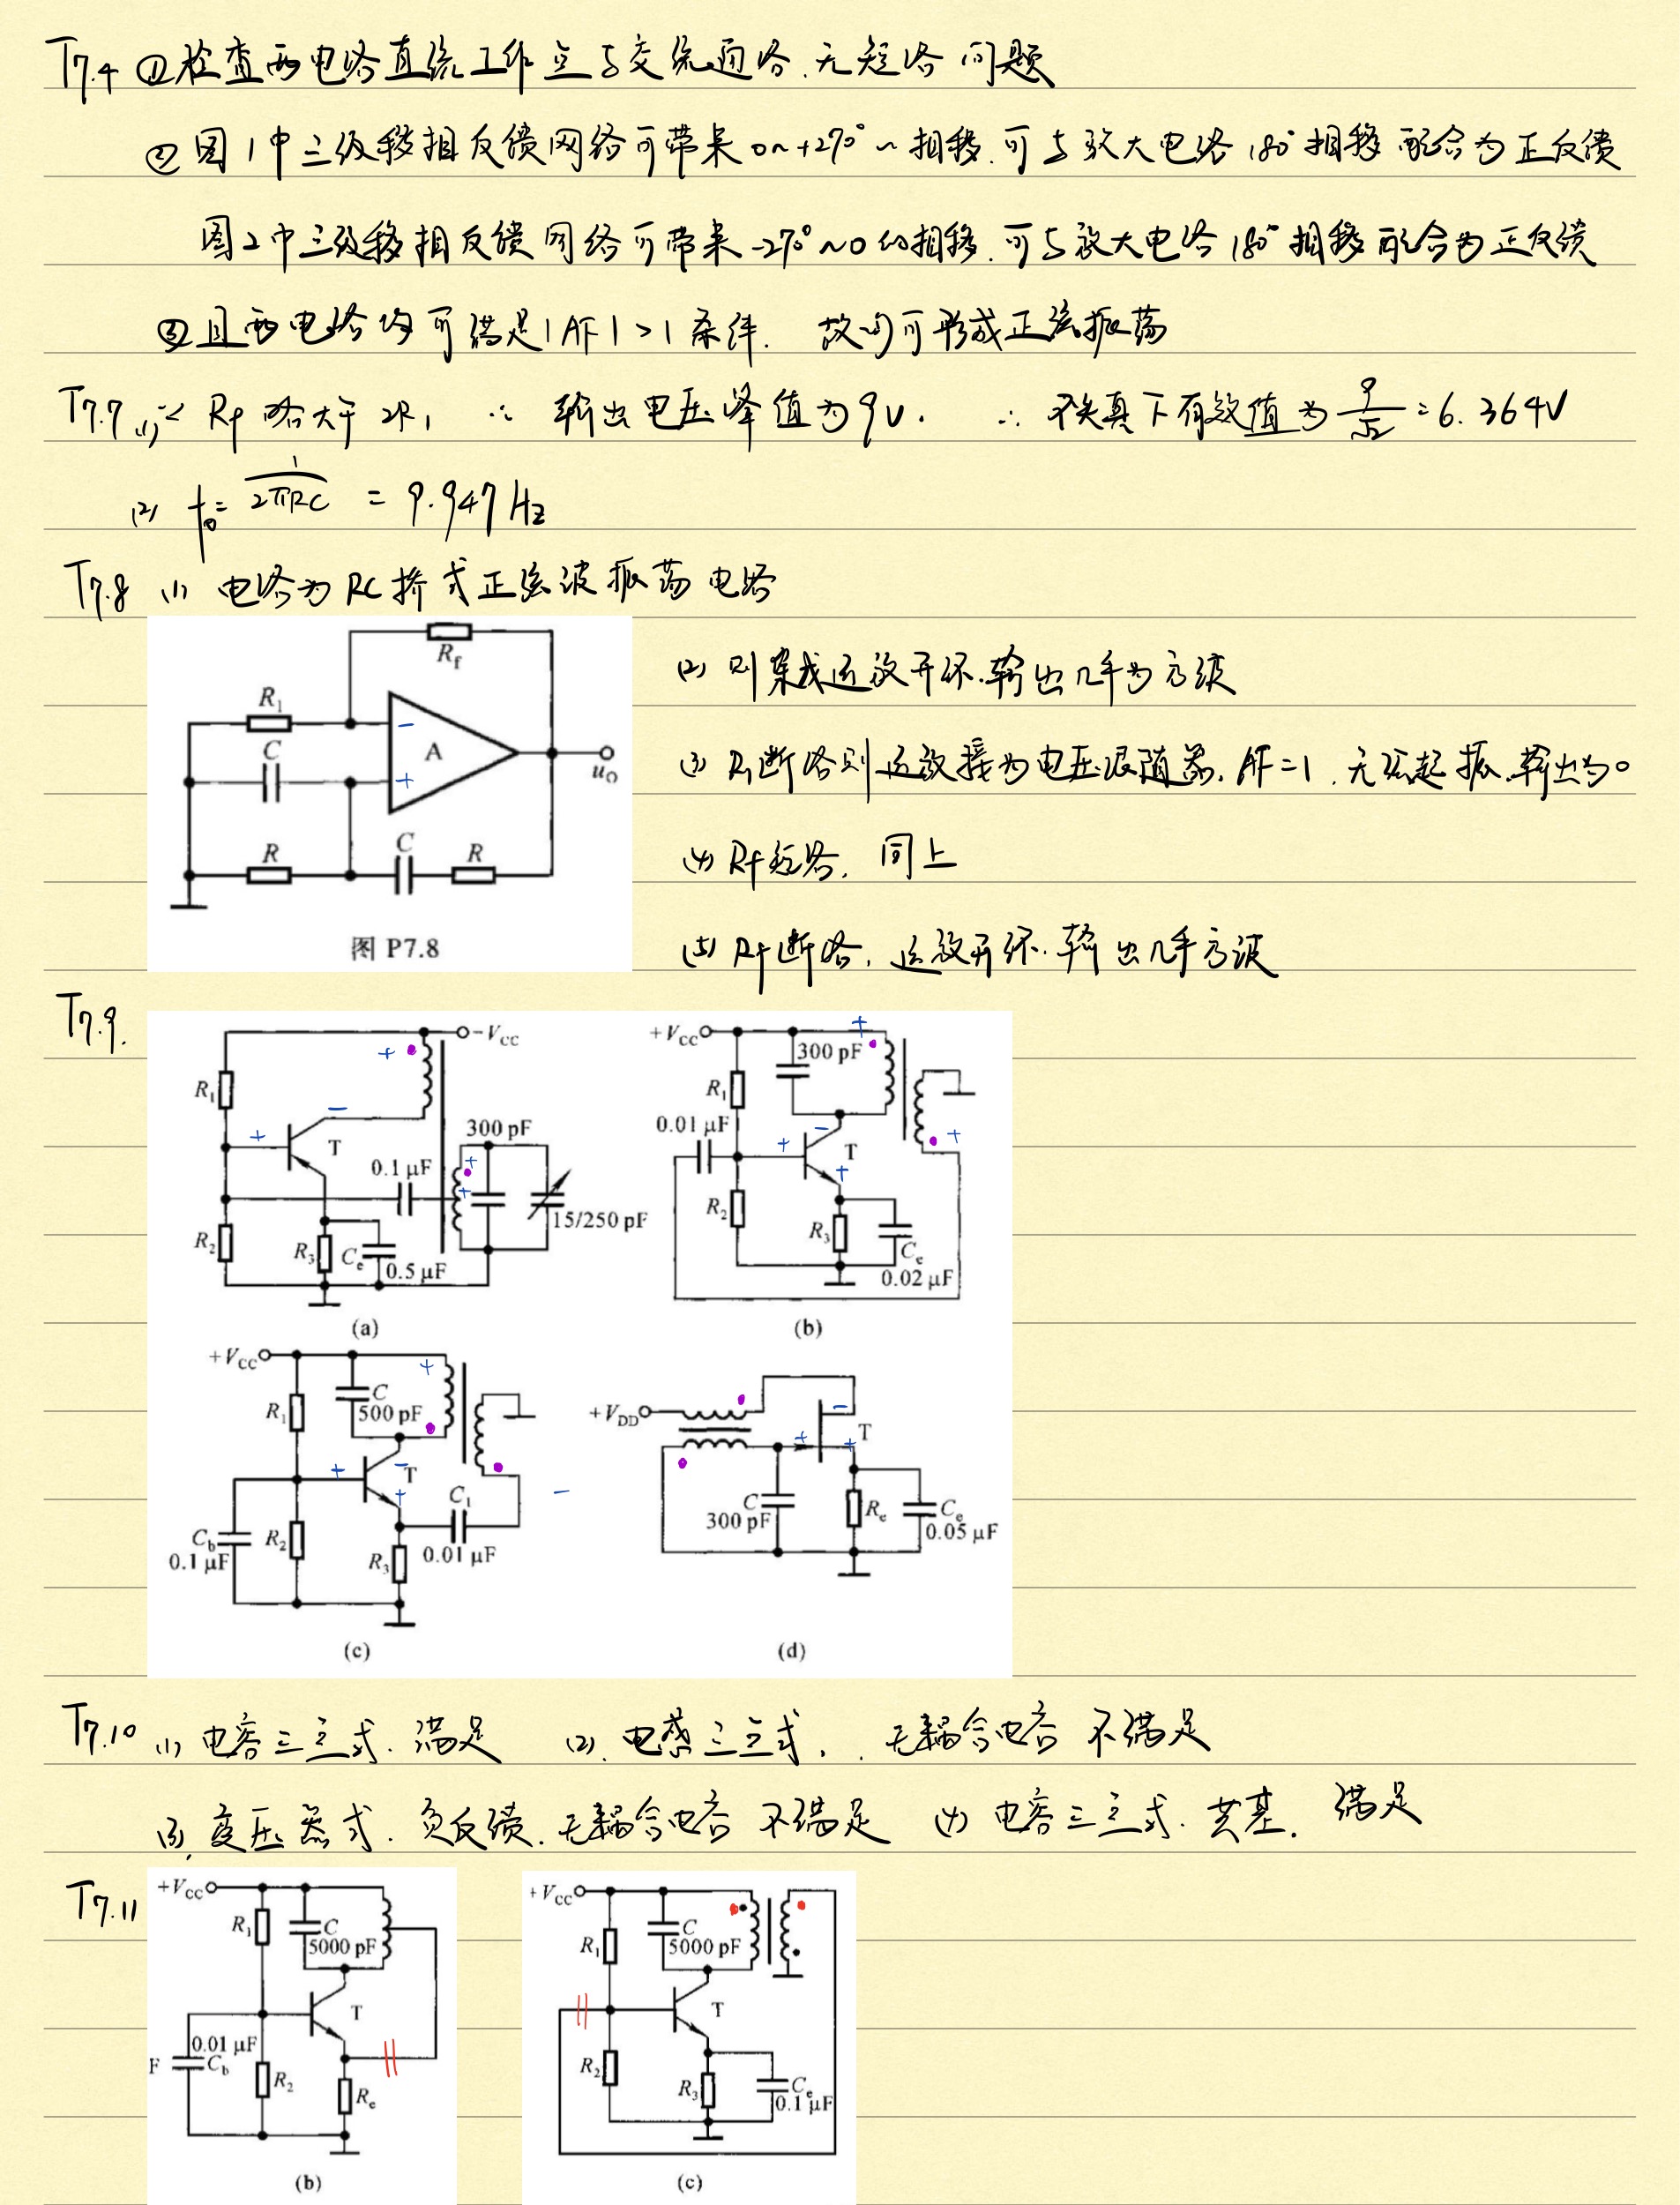 T7.4 ①检查两电路直流工作点与交流通路.无短路问题
②图1中三级移相反馈网络可带来0~+270°~相移.可与放大电路180°相移配合为正反馈
图2中三级移相反馈网络可带来-270°~0的相移.可与放大电路180°相移配合为正反馈
③且两电路均可满足|AF|>1条件. 故均可形成正弦振荡
T7.7 (1)∵ Rf略大于2R1 ∴ 输出电压峰值为9V. ∴ 不失真下有效值为9/√2=6.364V
(2) f0=1/2πRC = 9.947Hz
T7.8 (1) 电路为RC桥式正弦波振荡电路
Rf
R1
C
A
- +
uO
R C R
图 P7.8
(2) 则集成运放开环.输出几乎为方波
(3) R1断路则运放接为电压跟随器. AF=1.无法起振.输出为0
(4) Rf短路. 同上
(5) Rf断路. 运放开环.输出几乎方波
T7.9.
-VCC
+
R1
-
+
T
300 pF
0.1 μF
+
+
15/250 pF
R2
R3
Ce
0.5 μF
(a)
+VCC
+
300 pF
R1
0.01 μF
-
+
T
+
+
R2
R3
Ce
0.02 μF
(b)
+VCC
+
C
500 pF
R1
+
-
T
+
C1
-
Cb
0.1 μF
R2
R3
0.01 μF
(c)
+VDD
-
T
+
+
C
300 pF
Re
Ce
0.05 μF
(d)
T7.10 (1) 电容三点式. 满足 (2). 电感三点式, . 无耦合电容 不满足
(3). 变压器式. 负反馈.无耦合电容 不满足 (4) 电容三点式. 共基. 满足
T7.11
+VCC
R1
C
5000 pF
T
0.01 μF
F
Cb
R2
Re
(b)
+VCC
R1
C
5000 pF
T
R2
R3
Ce
0.1 μF
(c)